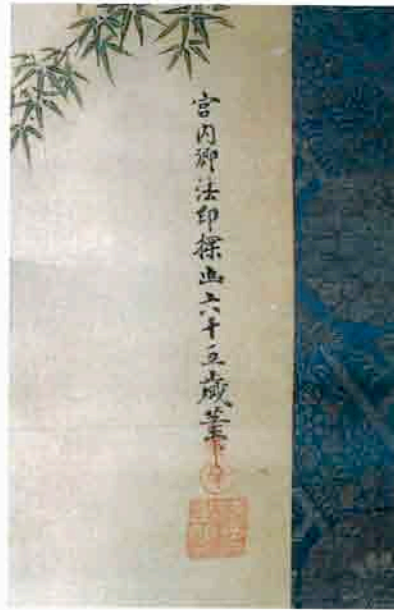 宮内卿法印探幽六十五歳筆